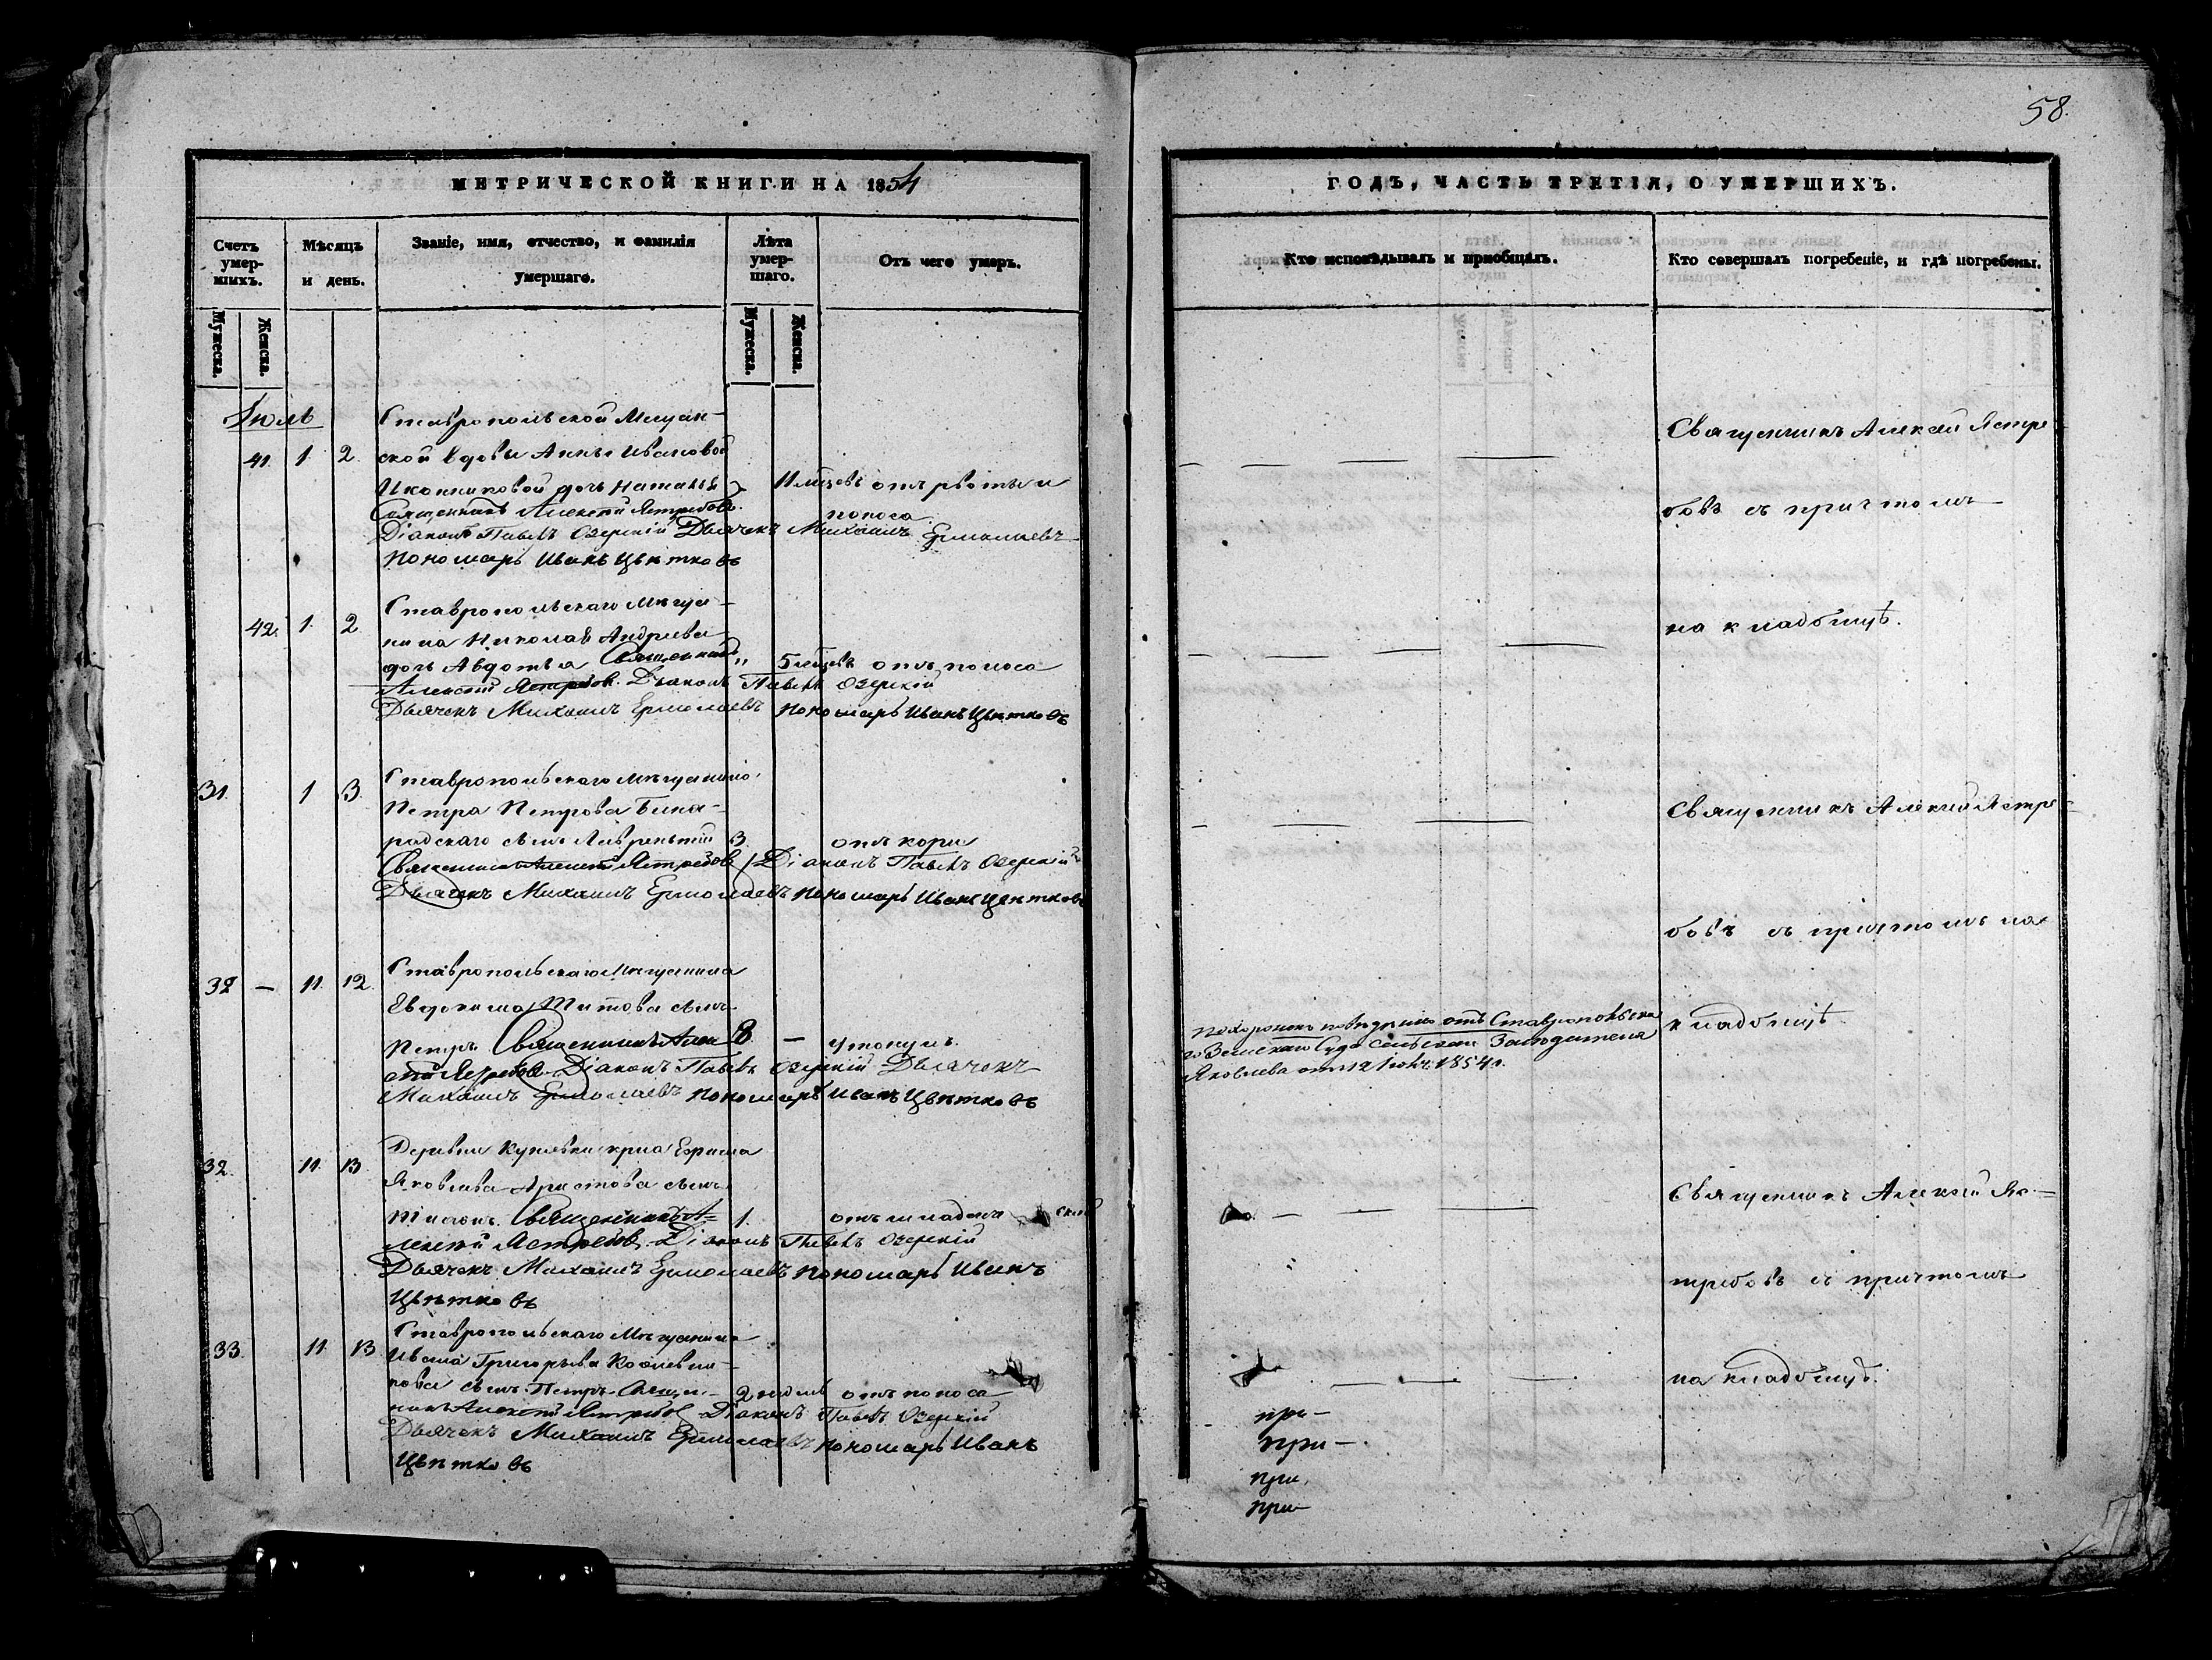 58.
МЕТРИЧЕСКОЙ КНИГИ НА 1854
Счетъ умершихъ.
Мѣсяцъ и день.
Званіе, имя, отчество, и фамилія умершаго.
Лѣта умершаго.
Отъ чего умеръ.
Мужеска.
Женска.
Мужеска.
Женска.
Іюль
Ставропольской Мещан-
41. 1. 2. ской вдовы Анны Ивановой
Иконниковой дочь Наталья 11 мѣсцевъ отъ рвоты и
Священникъ Алексѣй Ястребовъ. поноса
Діаконъ Павелъ Озерскій Дьячекъ Михаилъ Ермолаевъ
Пономарь Иванъ Цвѣтковъ
Ставропольскаго Мѣщa-
42. 1. 2 нина Николая Андреева
дочь Авдотья Священникъ „ 5 мѣсцевъ отъ поноса
Алексѣй Ястребовъ. Діаконъ Павелъ Озерскій
Дьячекъ Михаилъ Ермолаевъ Пономарь Иванъ Цвѣтковъ
31. 1 3. Ставропольскаго мѣщанина
Петра Петрова
сынъ Лаврентій 3. отъ кори
Священникъ Алексѣй Ястребовъ Діаконъ Павелъ Озерскій
Дьячекъ Михаилъ Ермолаевъ Пономарь Иванъ Цвѣтковъ
32 — 11. 12. Ставропольскаго Мѣщанина
Евдокима Титова сынъ
Петръ Священникъ Алек 8. — утонулъ.
сѣй Ястребовъ Діаконъ Павелъ Озерскій Дьячекъ
Михаилъ Ермолаевъ Пономарь Иванъ Цвѣтковъ
32. 11. 13. Деревни крна Ефима
Яковлева сынъ
Священникъ А- 1. отъ младенческой
лексѣй Ястребовъ Діаконъ Павелъ Озерскій
Дьячекъ Михаилъ Ермолаевъ Пономарь Иванъ
Цвѣтковъ
33. 11 13 Ставропольскаго Мѣщанина
Ивана Григорьева
сынъ Петръ Священ- 2 недель отъ поноса
никъ Алексѣй Ястребовъ Діаконъ Павелъ Озерскій
Дьячекъ Михаилъ Ермолаевъ Пономарь Иванъ
Цвѣтковъ
ГОДЪ, ЧАСТЬ ТРЕТІЯ, О УМЕРШИХЪ.
Кто исповѣдывалъ и пріобщалъ.
Кто совершалъ погребеніе, и гдѣ погребены.
Священникъ Алексѣй Ястре
бовъ съ причтомъ
на кладбищѣ.
Священникъ Алексѣй Ястре-
бовъ съ причтомъ на
кладбищѣ
отъ Ставропольска
го Земскаго Суда Засѣдателя
Яковлева отъ 12 Іюля 1854 г.
Священникъ Алексѣй Яс-
требовъ съ причтомъ
на кладбищѣ.
при-
при-
при.
при-